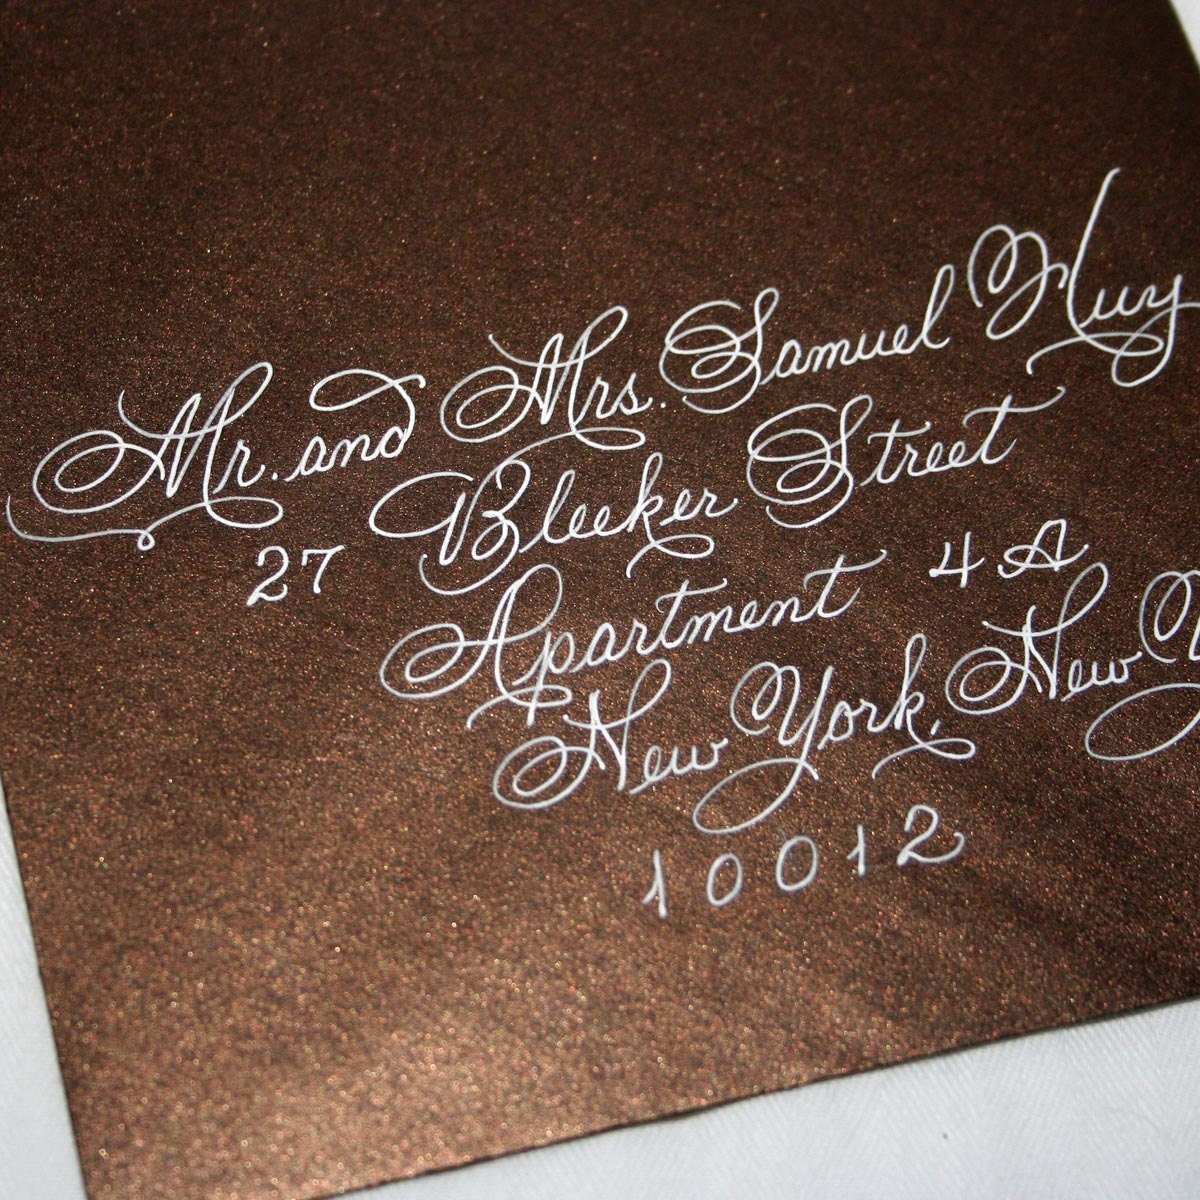 Mr. and Mrs. Samuel Huy
27 Bleeker Street
Apartment 4A
New York, New
10012